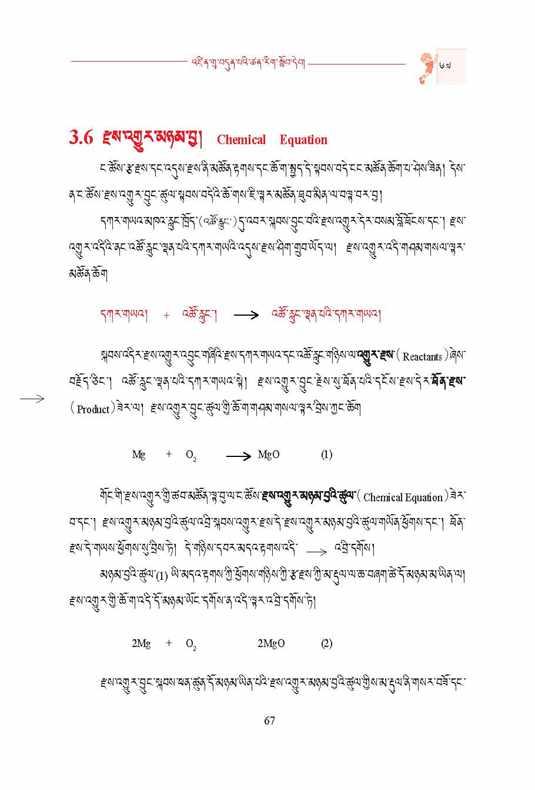 འཛིན་གྲྭ་བདུན་པའི་ཚན་རིག་སློབ་དེབ།
༦༧
3.6 རྫས་འགྱུར་མཉམ་བྱ། Chemical Equation
ང་ཚོས་རྩ་རྫས་དང་འདུས་རྫས་ནི་མཚོན་རྟགས་དང་ཚོ་ག་སྤྱད་དེ་སྟབས་བདེ་ངང་མཚོན་ཆོག་པ་ཤེས་ཟིན། དེས་
ན་ང་ཚོས་རྫས་འགྱུར་བྱུང་ཚུལ་སྟབས་བདེའི་ཚོ་གས་ཇི་ལྟར་མཚོན་ཐུབ་མིན་ལ་བལྟ་བར་བྱ།
དཀར་གཡའ་མཁའ་རླུང་ཁྲོད་(འཚོ་རླུང་)དུ་འབར་སྐབས་བྱུང་བའི་རྫས་འགྱུར་དེར་བསམ་བློ་ཐོངས་དང་། རྫས་
འགྱུར་འདིའི་ནང་འཚོ་རླུང་ལྡན་པའི་དཀར་གཡའི་འདུས་རྫས་ཤིག་གྲུབ་ཡོད་ལ། རྫས་འགྱུར་འདི་གཤམ་གསལ་ལྟར་
མཚོན་ཆོག
དཀར་གཡའ། + འཚོ་རླུང་། ⟶ འཚོ་རླུང་ལྡན་པའི་དཀར་གཡའ།
སྐབས་འདིར་རྫས་འགྱུར་འབྱུང་གཞིའི་རྫས་དཀར་གཡའ་དང་འཚོ་རླུང་གཉིས་ལ་འགྱུར་རྫས་( Reactants )ཞེས་
བརྗོད་ཅིང་། འཚོ་རླུང་ལྡན་པའི་དཀར་གཡའ་སྟེ། རྫས་འགྱུར་བྱུང་རྗེས་སུ་ཐོན་པའི་དངོས་རྫས་དེར་ཐོན་རྫས་
( Product )ཟེར་ལ། རྫས་འགྱུར་བྱུང་ཚུལ་གྱི་ཚོ་ག་གཤམ་གསལ་ལྟར་བྲིས་ཀྱང་ཆོག
⟶
Mg + O₂ ⟶ MgO (1)
གོང་གི་རྫས་འགྱུར་གྱི་ཚབ་མཚོན་ལྟ་བུ་ལ་ང་ཚོས་རྫས་འགྱུར་མཉམ་བྱའི་ཚུལ་( Chemical Equation )ཟེར་
བ་དང་། རྫས་འགྱུར་མཉམ་བྱའི་ཚུལ་འབྲི་སྐབས་འགྱུར་རྫས་དེ་རྫས་འགྱུར་མཉམ་བྱའི་ཚུལ་གཡོན་ཕྱོགས་དང་། ཐོན་
རྫས་དེ་གཡས་ཕྱོགས་སུ་བྲིས་ཏེ། དེ་གཉིས་དབར་མདའ་རྟགས་འདི་ ⟶ འབྲི་དགོས།
མཉམ་བྱའི་ཚུལ་(1) ཡི་མདའ་རྟགས་ཀྱི་ཕྱོགས་གཉིས་ཀྱི་རྩ་རྫས་ཀྱི་མ་རྡུལ་ལ་ཆ་བཞག་ཚེ་དོ་མཉམ་མ་ཡིན་ལ།
རྫས་འགྱུར་གྱི་ཚོ་ག་འདི་དོ་མཉམ་ཡོང་དགོས་ན་འདི་ལྟར་འབྲི་དགོས་ཏེ།
2Mg + O₂ 2MgO (2)
རྫས་འགྱུར་བྱུང་སྐབས་ཕན་ཚུན་དོ་མཉམ་ཡིན་པའི་རྫས་འགྱུར་མཉམ་བྱའི་ཚུལ་གྱིས་མ་རྡུལ་ནི་གསར་བཟོ་དང་
67